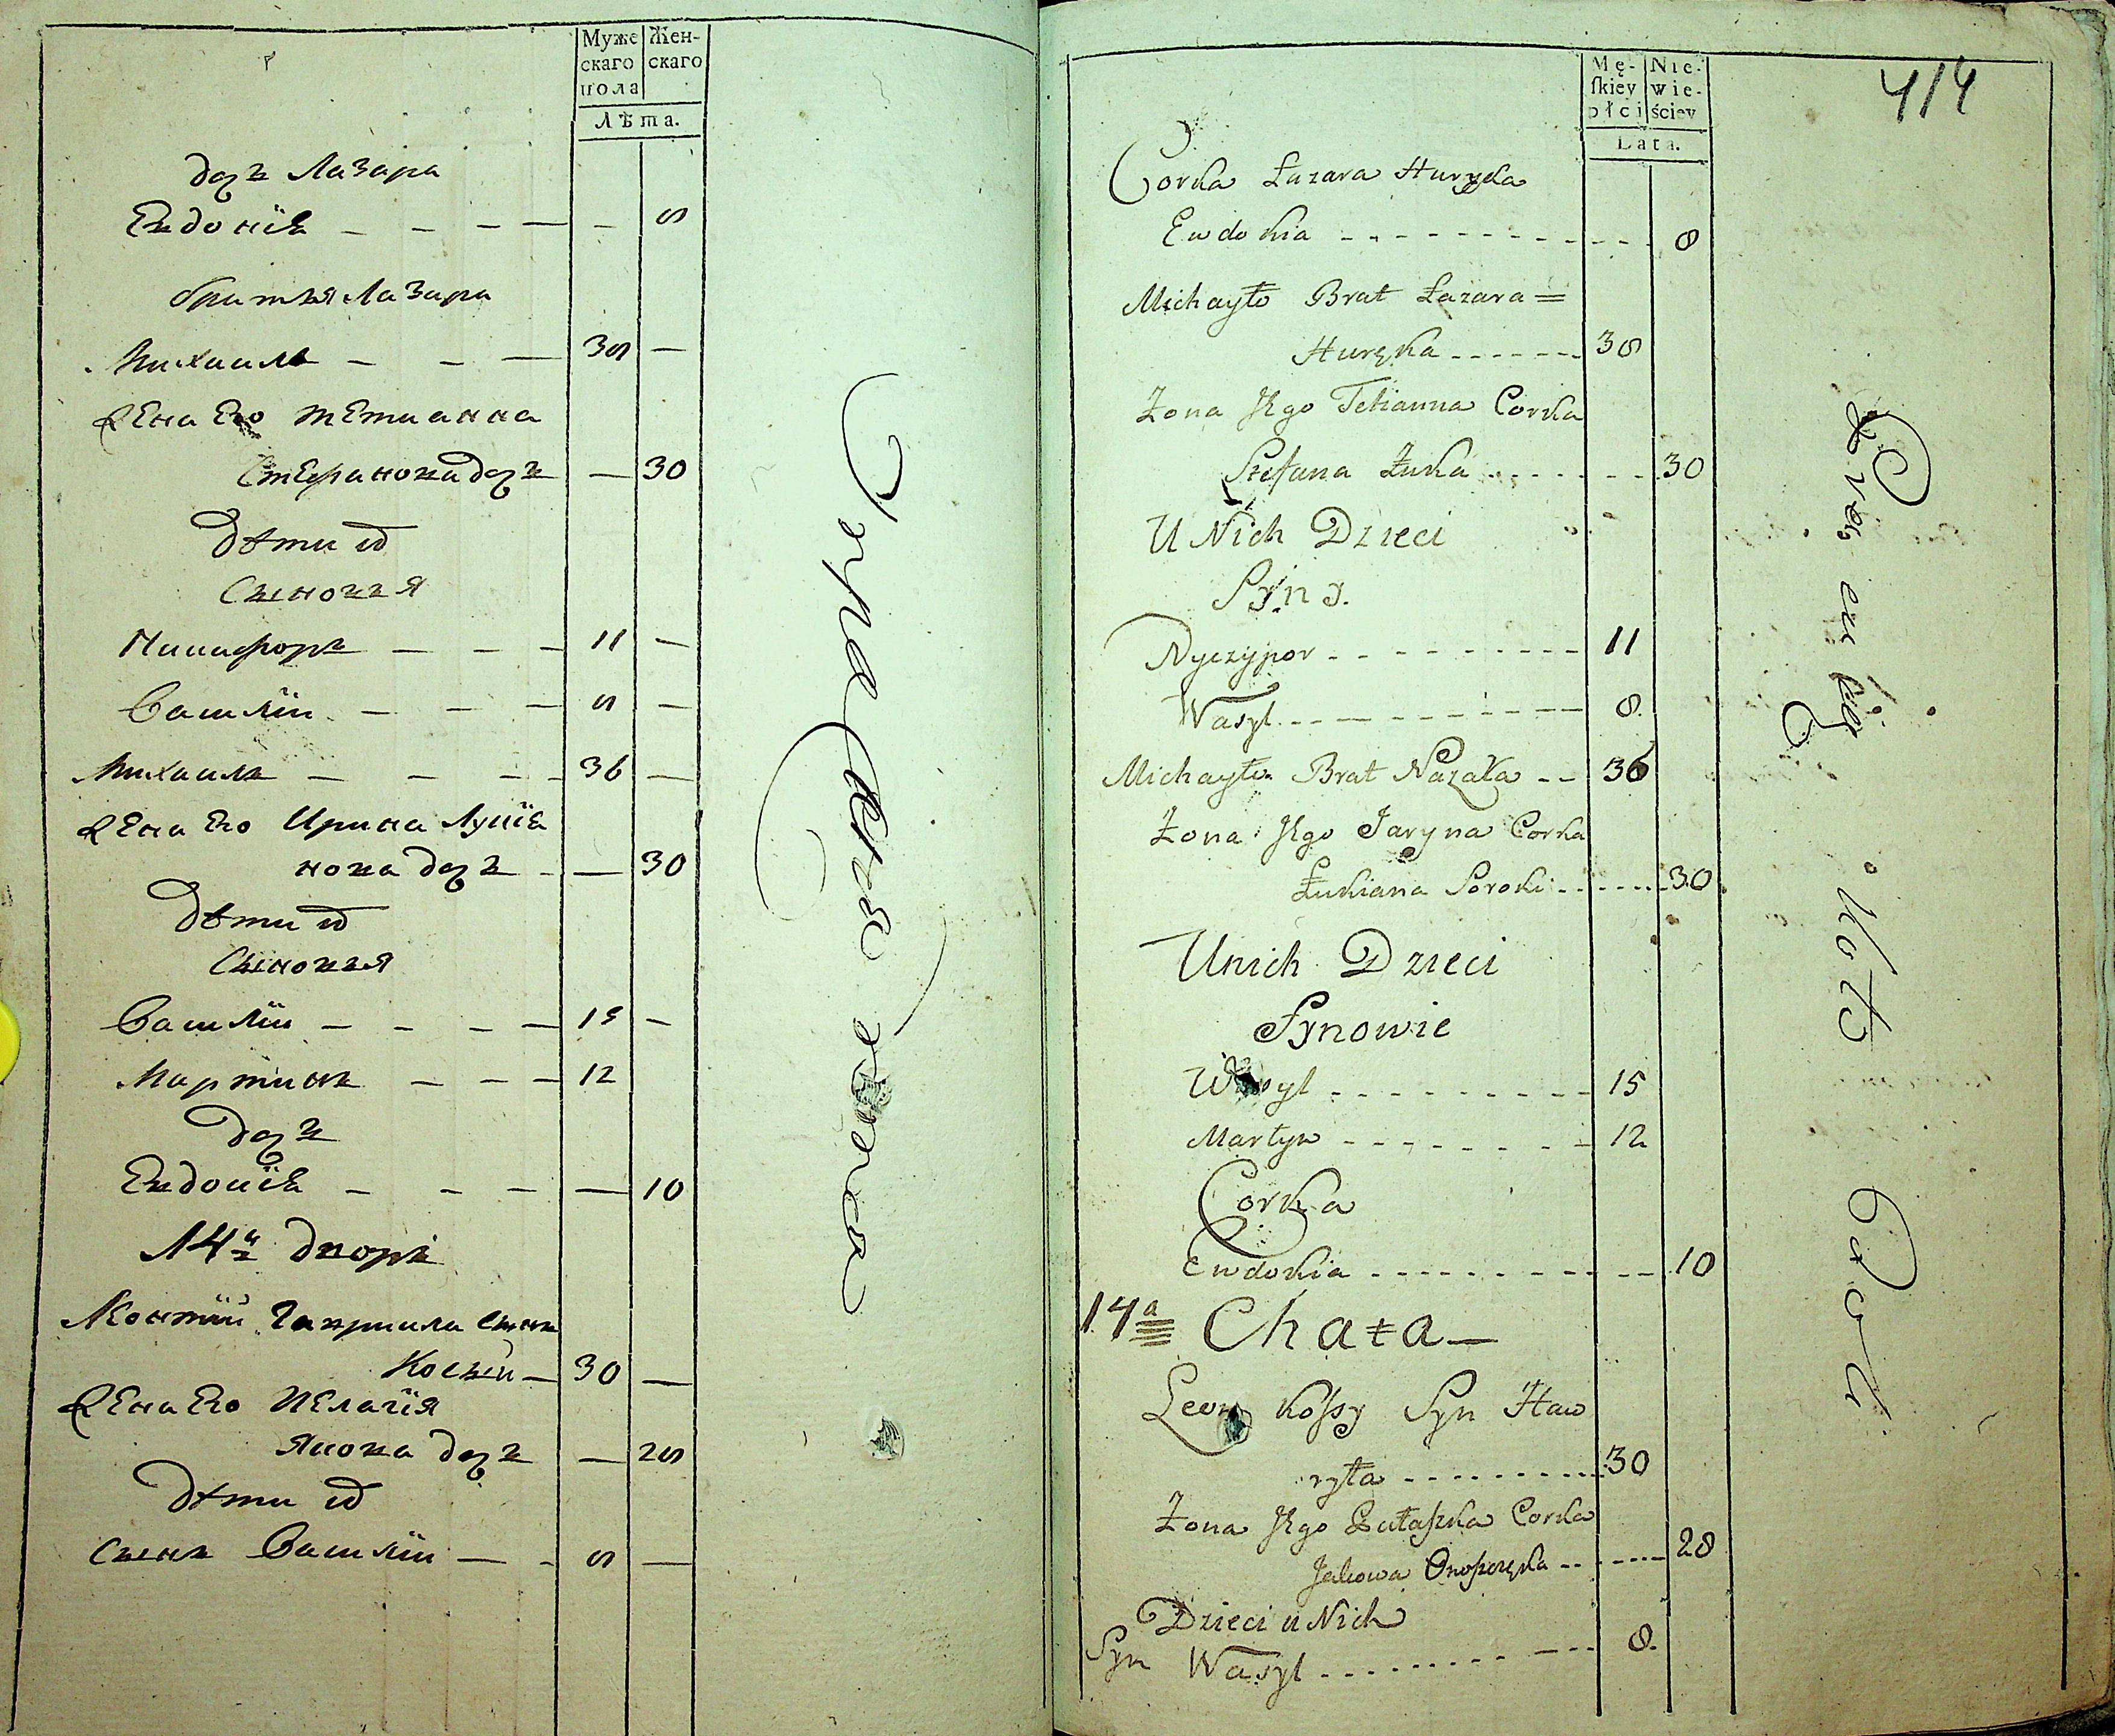 Муже
скаго
пола
Жен-
скаго
Лѣта.
дочь Лазара
Евдокія — — — — — 8
братья Лазара
Михаилъ — — — 38 —
жена Его Тетианна
Стефанова дочь — 30
Дѣти их
Сыновья
Никифоръ — — — 11 —
Василій — — — 8 —
Михаилъ — — — — 36 —
жена Его Ирина Лукія
нова дочь — — 30
Дѣти их
Сыновья
Василій — — — — 15 —
Мартинъ — — — 12
дочь
Евдокія — — — — 10
14й дворъ
Леонтій Гавриила Сынъ
Косый — 30 —
жена Его Пелагія
Якова дочь — 28
Дѣти их
Сынъ Василій — — 8 —
414
Mę-
ſkiey
płci
Nie-
wie-
ściey
Lata.
Corka Łazara Huryka
Ewdokia 8
Michayło Brat Łazara =
Huryka 38
Żona Jego Tetianna Corka
Stefana Żuka 30
U Nich Dzieci
Syny.
Nyczypor 11
Wasyl 8.
Michayło Brat Nazara 36
Żona Jego Jaryna Corka
Łukiana Soroki 30
Unich Dzieci
Synowie
Wasyl 15
Martyn 12
Corka
Ewdokia 10
14a Chata —
Leon Koſsy Syn Haw
ryła 30
Żona Jego Pałaſzka Corka
Jakowa 28
Dzieci u Nich
Syn Wasyl 8.